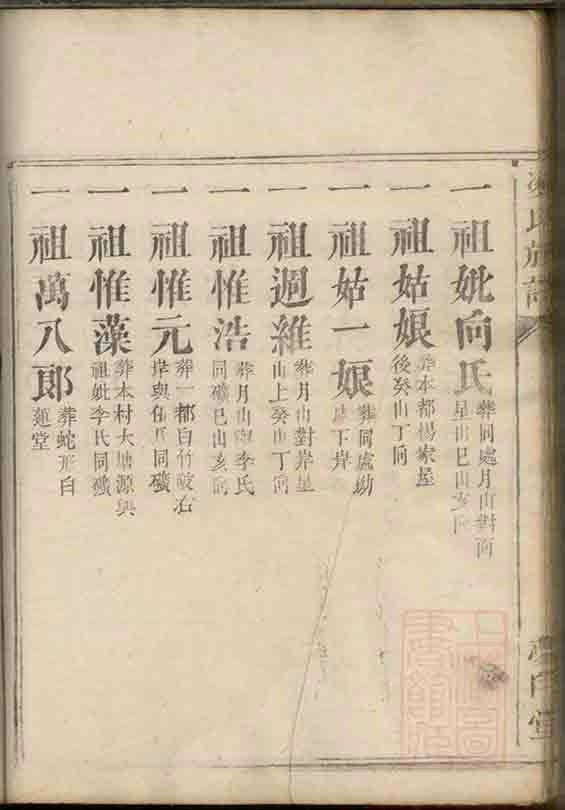 一祖妣向氏葬同處月山對面
星山巳山亥向
一祖姑娘葬本都楊家屋
後癸山丁向
一祖姑一娘葬同處坳
下岸
一祖迥維葬月山對岸星
山上癸山丁向
一祖惟浩葬月山與李氏
同礦巳山亥向
一祖惟元葬一都白竹陂右
岸與伍氏同礦
一祖惟藻葬本村大塘源與
祖妣李氏同礦
一祖萬八郎葬蛇形白
蓮堂
氏族譜